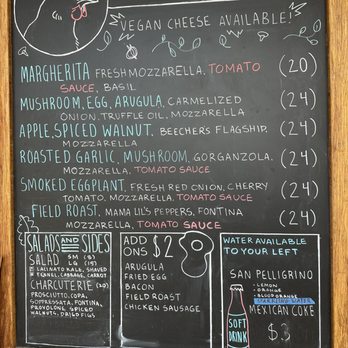 VEGAN CHEESE AVAILABLE!
MARGHERITA FRESH MOZZARELLA, TOMATO (20)
SAUCE, BASIL
MUSHROOM, EGG, ARUGULA, CARMELIZED (24)
ONION, TRUFFLE OIL, MOZZARELLA
APPLE, SPICED WALNUT, BEECHERS FLAGSHIP, (24)
MOZZARELLA
ROASTED GARLIC, MUSHROOM, GORGANZOLA, (24)
MOZZARELLA, TOMATO SAUCE
SMOKED EGGPLANT, FRESH RED ONION, CHERRY (24)
TOMATO, MOZZARELLA, TOMATO SAUCE
FIELD ROAST, MAMA LIL'S PEPPERS, FONTINA (24)
MOZZARELLA, TOMATO SAUCE
SALADS AND SIDES
SALAD SM (8)
LG (15)
LACINATO KALE, SHAVED
FENNEL, CABBAGE, CARROT
CHARCUTERIE (20)
PROSCIUTTO, COPA,
SOPPRESSATA, FONTINA,
PROVOLONE, SPICED
WALNUTS, DRIED FIGS
ADD ONS $2
ARUGULA
FRIED EGG
BACON
FIELD ROAST
CHICKEN SAUSAGE
WATER AVAILABLE
TO YOUR LEFT
SAN PELLIGRINO
- LEMON
- ORANGE
- BLOOD ORANGE
SPARKLING WATER
MEXICAN COKE
$3
SOFT
DRINK